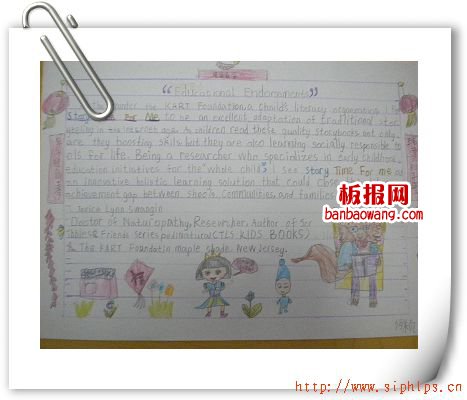 "Educational Endorsements"
under the KART Foundation, a child's literacy organization I
Story For Me to be an excellent adaptation of traditional stor
ytelling in the internet age. As children read these quality storybooks not only
are they boosting skills but they are also learning socially responsible to
ols for life. Being a researcher who specializes in early childhood
education initiatives for the "whole child", I see Story Time For me as
an innovative holistic learning solution that could close
achievement gap between shools, communities, and families
Janice Lynn Swangin
Director of Naturopathy, Researcher, Author of Scr
ibbles & Friends Series pedinatural CTLS KIDS BOOKS)
& The KART Foundatin maple shade. New Jersey.
板报网
banbaowang.com
http://www.siphlps.cn